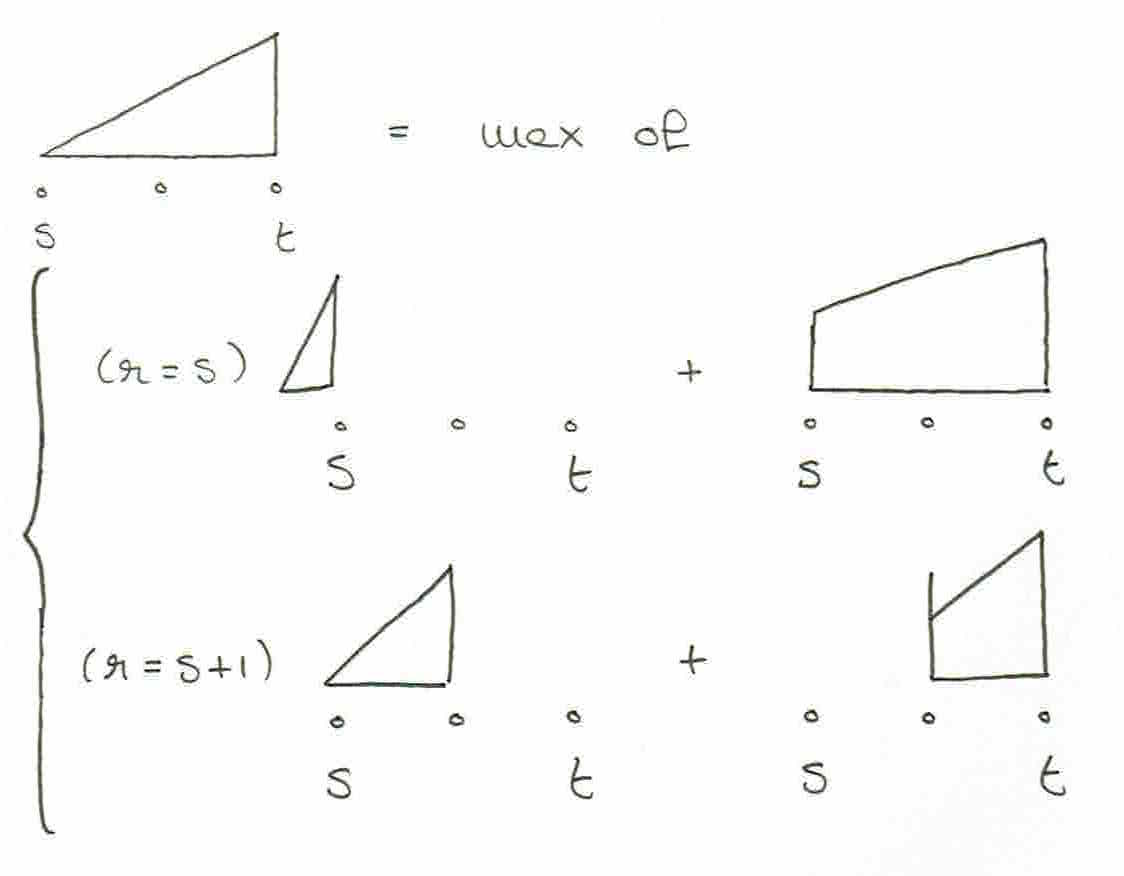 = max of
s t
(r = s) +
s t s t
(r = s+1) +
s t s t